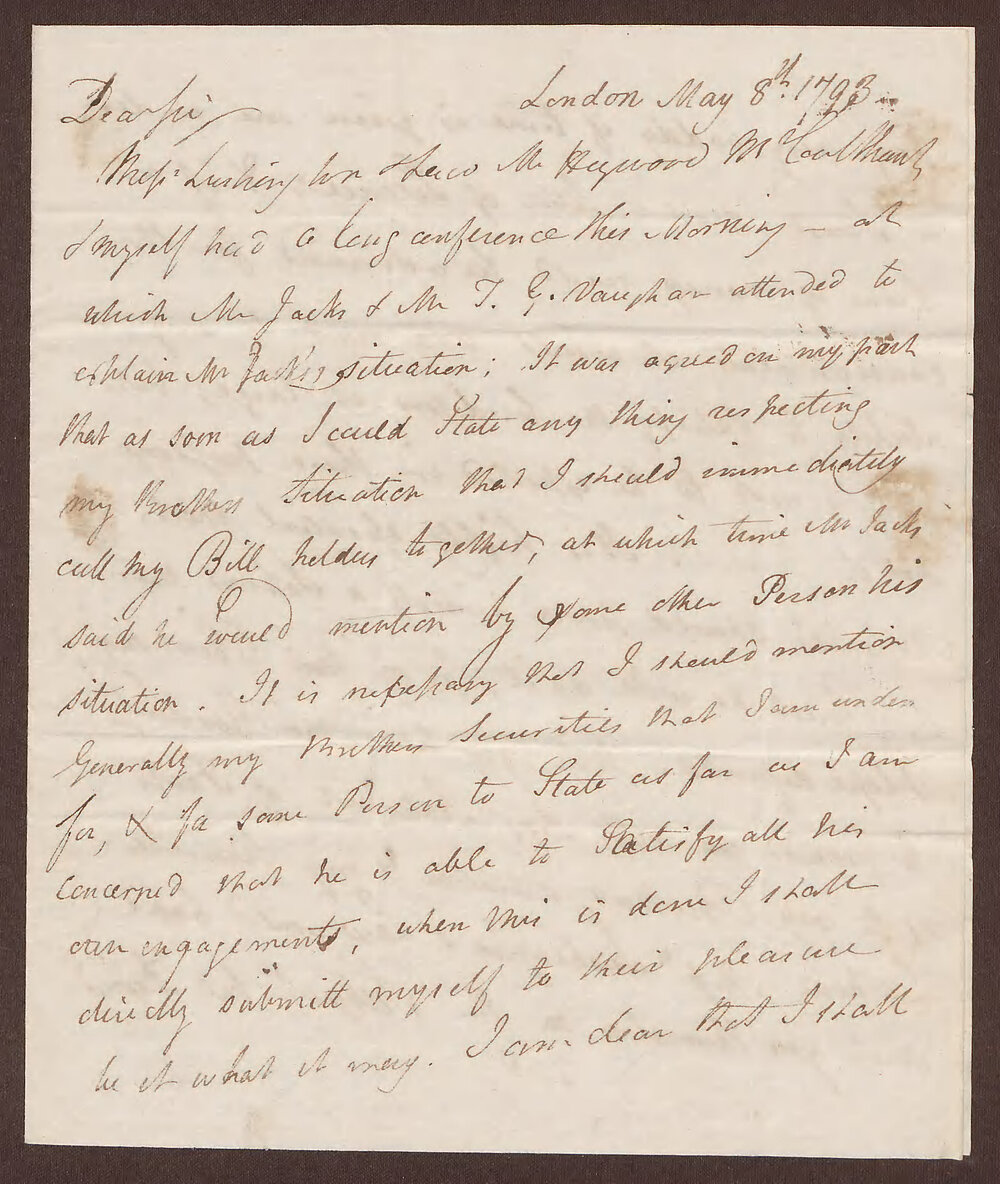 London May 8th. 1793
Dear Sir
Messrs Lushington & Mr Heywood Mr
& myself had a long conference this Morning – at
which Mr Jacks & Mr T. G. Vaughan attended to
explain Mr Jacks's situation; It was agreed on my part
that as soon as I could State any thing respecting
my Brothers Situation that I should immediately
call my Bill holders together, at which time Mr Jacks
said he would mention by some other Person his
situation. It is necessary that I should mention
Generally my Brothers Securities that I am under
for, & for some Person to State as far as I am
concerned that he is able to Satisfy all his
own engagements, when this is done I shall
directly submitt myself to their pleasure
be it what it may. I am clear that I shall